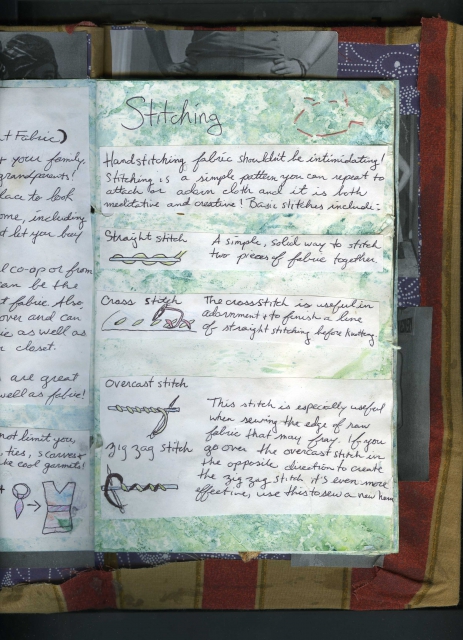 t Fabric)
t your family,
grandparents!
lace to look
ome, including
t let you buy
l co-op or from
can be the
t fabric. Also,
over and can
ic as well as
r closet.
s are great
well as fabric!
not limit you,
ties, scarves +
ke cool garments!
Stitching
Handstitching fabric shouldn't be intimidating!
Stitching is a simple pattern you can repeat to
attach or adorn cloth and it is both
meditative and creative! Basic stitches include:
Straight stitch
A simple, solid way to stitch
two pieces of fabric together.
Cross stitch
The cross stitch is useful in
adornment + to finish a line
of straight stitching before knotting.
Overcast stitch
This stitch is especially useful
when sewing the edge of raw
fabric that may fray. If you
go over the overcast stitch in
the opposite direction to create
the zig zag stitch it's even more
effective, use this to sew a new hem
zig zag stitch